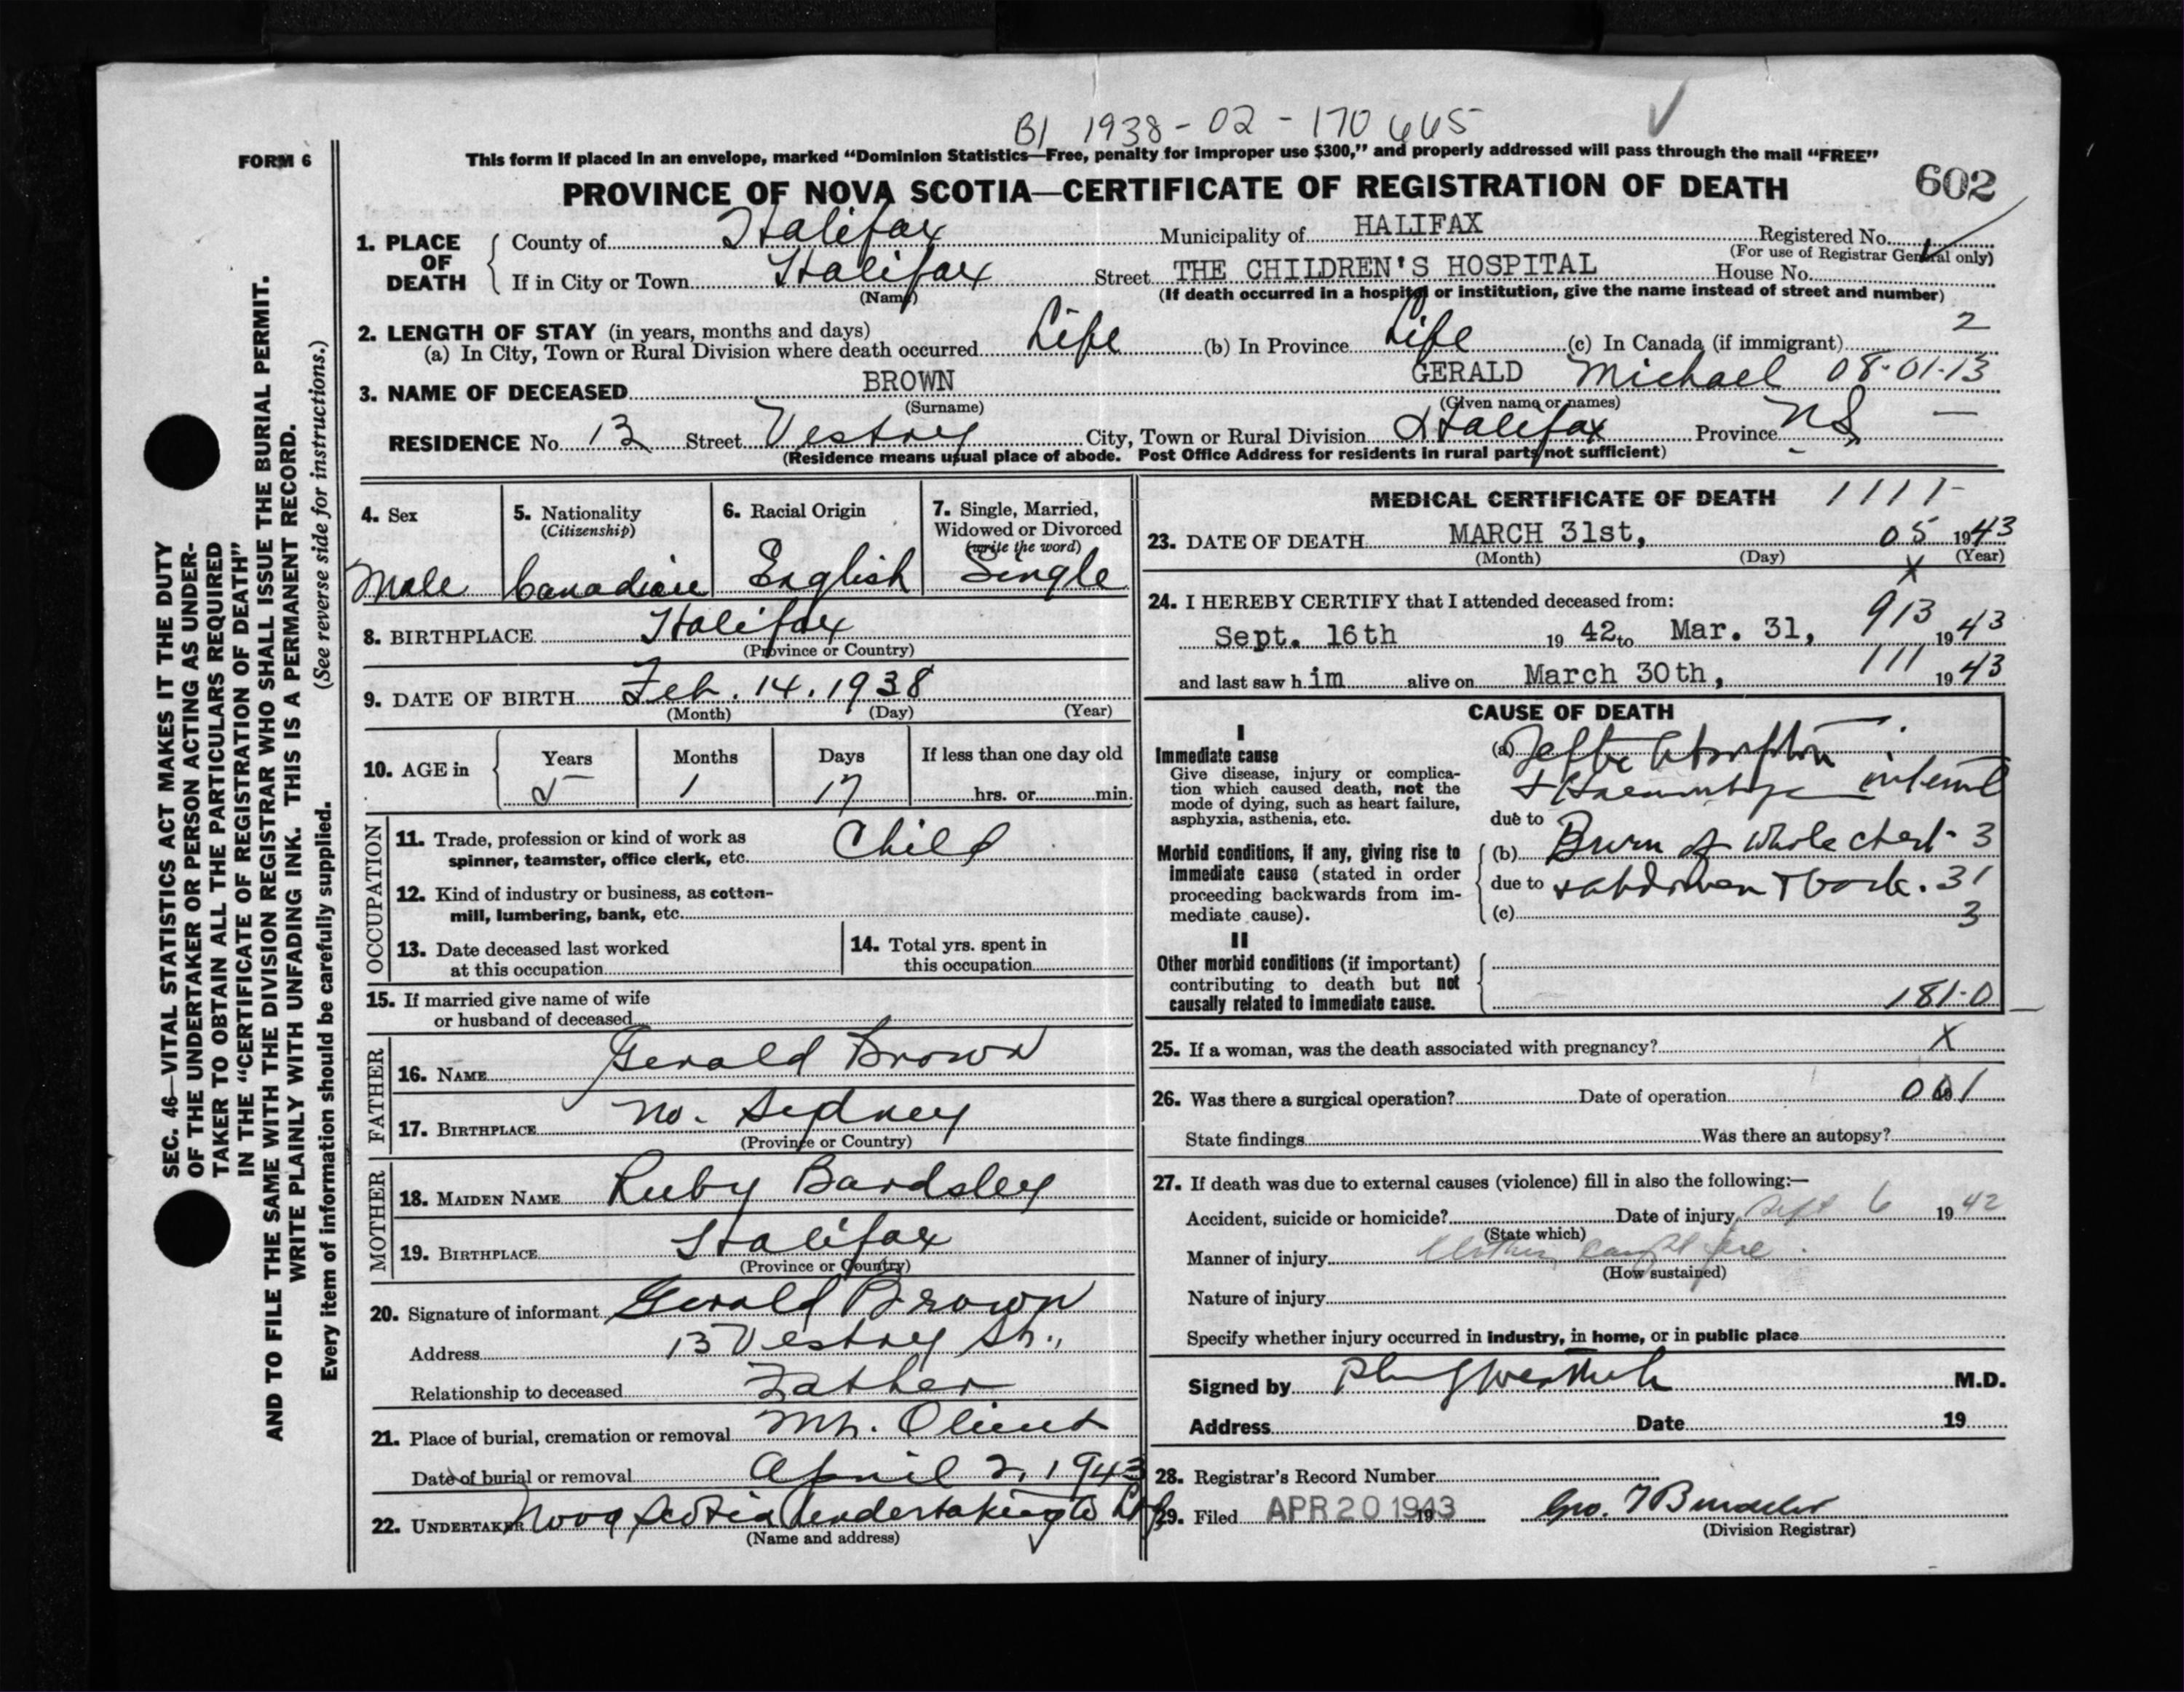 B1 1938-02-170445
FORM 6
This form if placed in an envelope, marked “Dominion Statistics—Free, penalty for improper use $300,” and properly addressed will pass through the mail “FREE”
PROVINCE OF NOVA SCOTIA—CERTIFICATE OF REGISTRATION OF DEATH
602
1. PLACE OF DEATH
County of Halifax Municipality of HALIFAX Registered No.
(For use of Registrar General only)
If in City or Town Halifax Street THE CHILDREN'S HOSPITAL House No.
(Name) (If death occurred in a hospital or institution, give the name instead of street and number)
2. LENGTH OF STAY (in years, months and days) 2
(a) In City, Town or Rural Division where death occurred Life (b) In Province Life (c) In Canada (if immigrant)
3. NAME OF DECEASED BROWN GERALD Michael 08-01-13
(Surname) (Given name or names)
RESIDENCE No. 13 Street Vestry City, Town or Rural Division Halifax Province NS
(Residence means usual place of abode. Post Office Address for residents in rural parts not sufficient)
4. Sex Male
5. Nationality (Citizenship) Canadian
6. Racial Origin English
7. Single, Married, Widowed or Divorced (write the word) Single
8. BIRTHPLACE Halifax
(Province or Country)
9. DATE OF BIRTH Feb. 14. 1938
(Month) (Day) (Year)
10. AGE in
Years Months Days If less than one day old
5 1 17 hrs. or min.
OCCUPATION
11. Trade, profession or kind of work as
spinner, teamster, office clerk, etc. Child
12. Kind of industry or business, as cotton-
mill, lumbering, bank, etc.
13. Date deceased last worked
at this occupation
14. Total yrs. spent in
this occupation
15. If married give name of wife
or husband of deceased
FATHER
16. NAME Gerald Brown
17. BIRTHPLACE No. Sydney
(Province or Country)
MOTHER
18. MAIDEN NAME Ruby Bardsley
19. BIRTHPLACE Halifax
(Province or Country)
20. Signature of informant Gerald Brown
Address 13 Vestry St.,
Relationship to deceased Father
21. Place of burial, cremation or removal Mt. Olivet
Date of burial or removal April 2, 1943
22. UNDERTAKER Nova Scotia Undertaking Co
(Name and address)
MEDICAL CERTIFICATE OF DEATH 1111-
23. DATE OF DEATH MARCH 31st, 05 1943
(Month) (Day) (Year)
x
24. I HEREBY CERTIFY that I attended deceased from:
Sept. 16th 19 42 to Mar. 31, 913 1943
and last saw h im alive on March 30th, 111 1943
CAUSE OF DEATH
I
Immediate cause
Give disease, injury or complica-
tion which caused death, not the
mode of dying, such as heart failure,
asphyxia, asthenia, etc.
(a)
due to
Morbid conditions, if any, giving rise to
immediate cause (stated in order
proceeding backwards from im-
mediate cause).
(b) Burn of whole chest 3
due to + abdomen + back. 31
(c) 3
II
Other morbid conditions (if important)
contributing to death but not
causally related to immediate cause.
181-0
25. If a woman, was the death associated with pregnancy? X
26. Was there a surgical operation? Date of operation
State findings Was there an autopsy?
27. If death was due to external causes (violence) fill in also the following:—
Accident, suicide or homicide? Date of injury Sept 6 1942
(State which)
Manner of injury Clothing caught fire.
(How sustained)
Nature of injury
Specify whether injury occurred in industry, in home, or in public place
Signed by M.D.
Address Date 19
28. Registrar's Record Number
29. Filed APR 20 1943 19
(Division Registrar)
SEC. 46—VITAL STATISTICS ACT MAKES IT THE DUTY
OF THE UNDERTAKER OR PERSON ACTING AS UNDER-
TAKER TO OBTAIN ALL THE PARTICULARS REQUIRED
IN THE “CERTIFICATE OF REGISTRATION OF DEATH”
AND TO FILE THE SAME WITH THE DIVISION REGISTRAR WHO SHALL ISSUE THE BURIAL PERMIT.
WRITE PLAINLY WITH UNFADING INK. THIS IS A PERMANENT RECORD.
Every item of information should be carefully supplied. (See reverse side for instructions.)